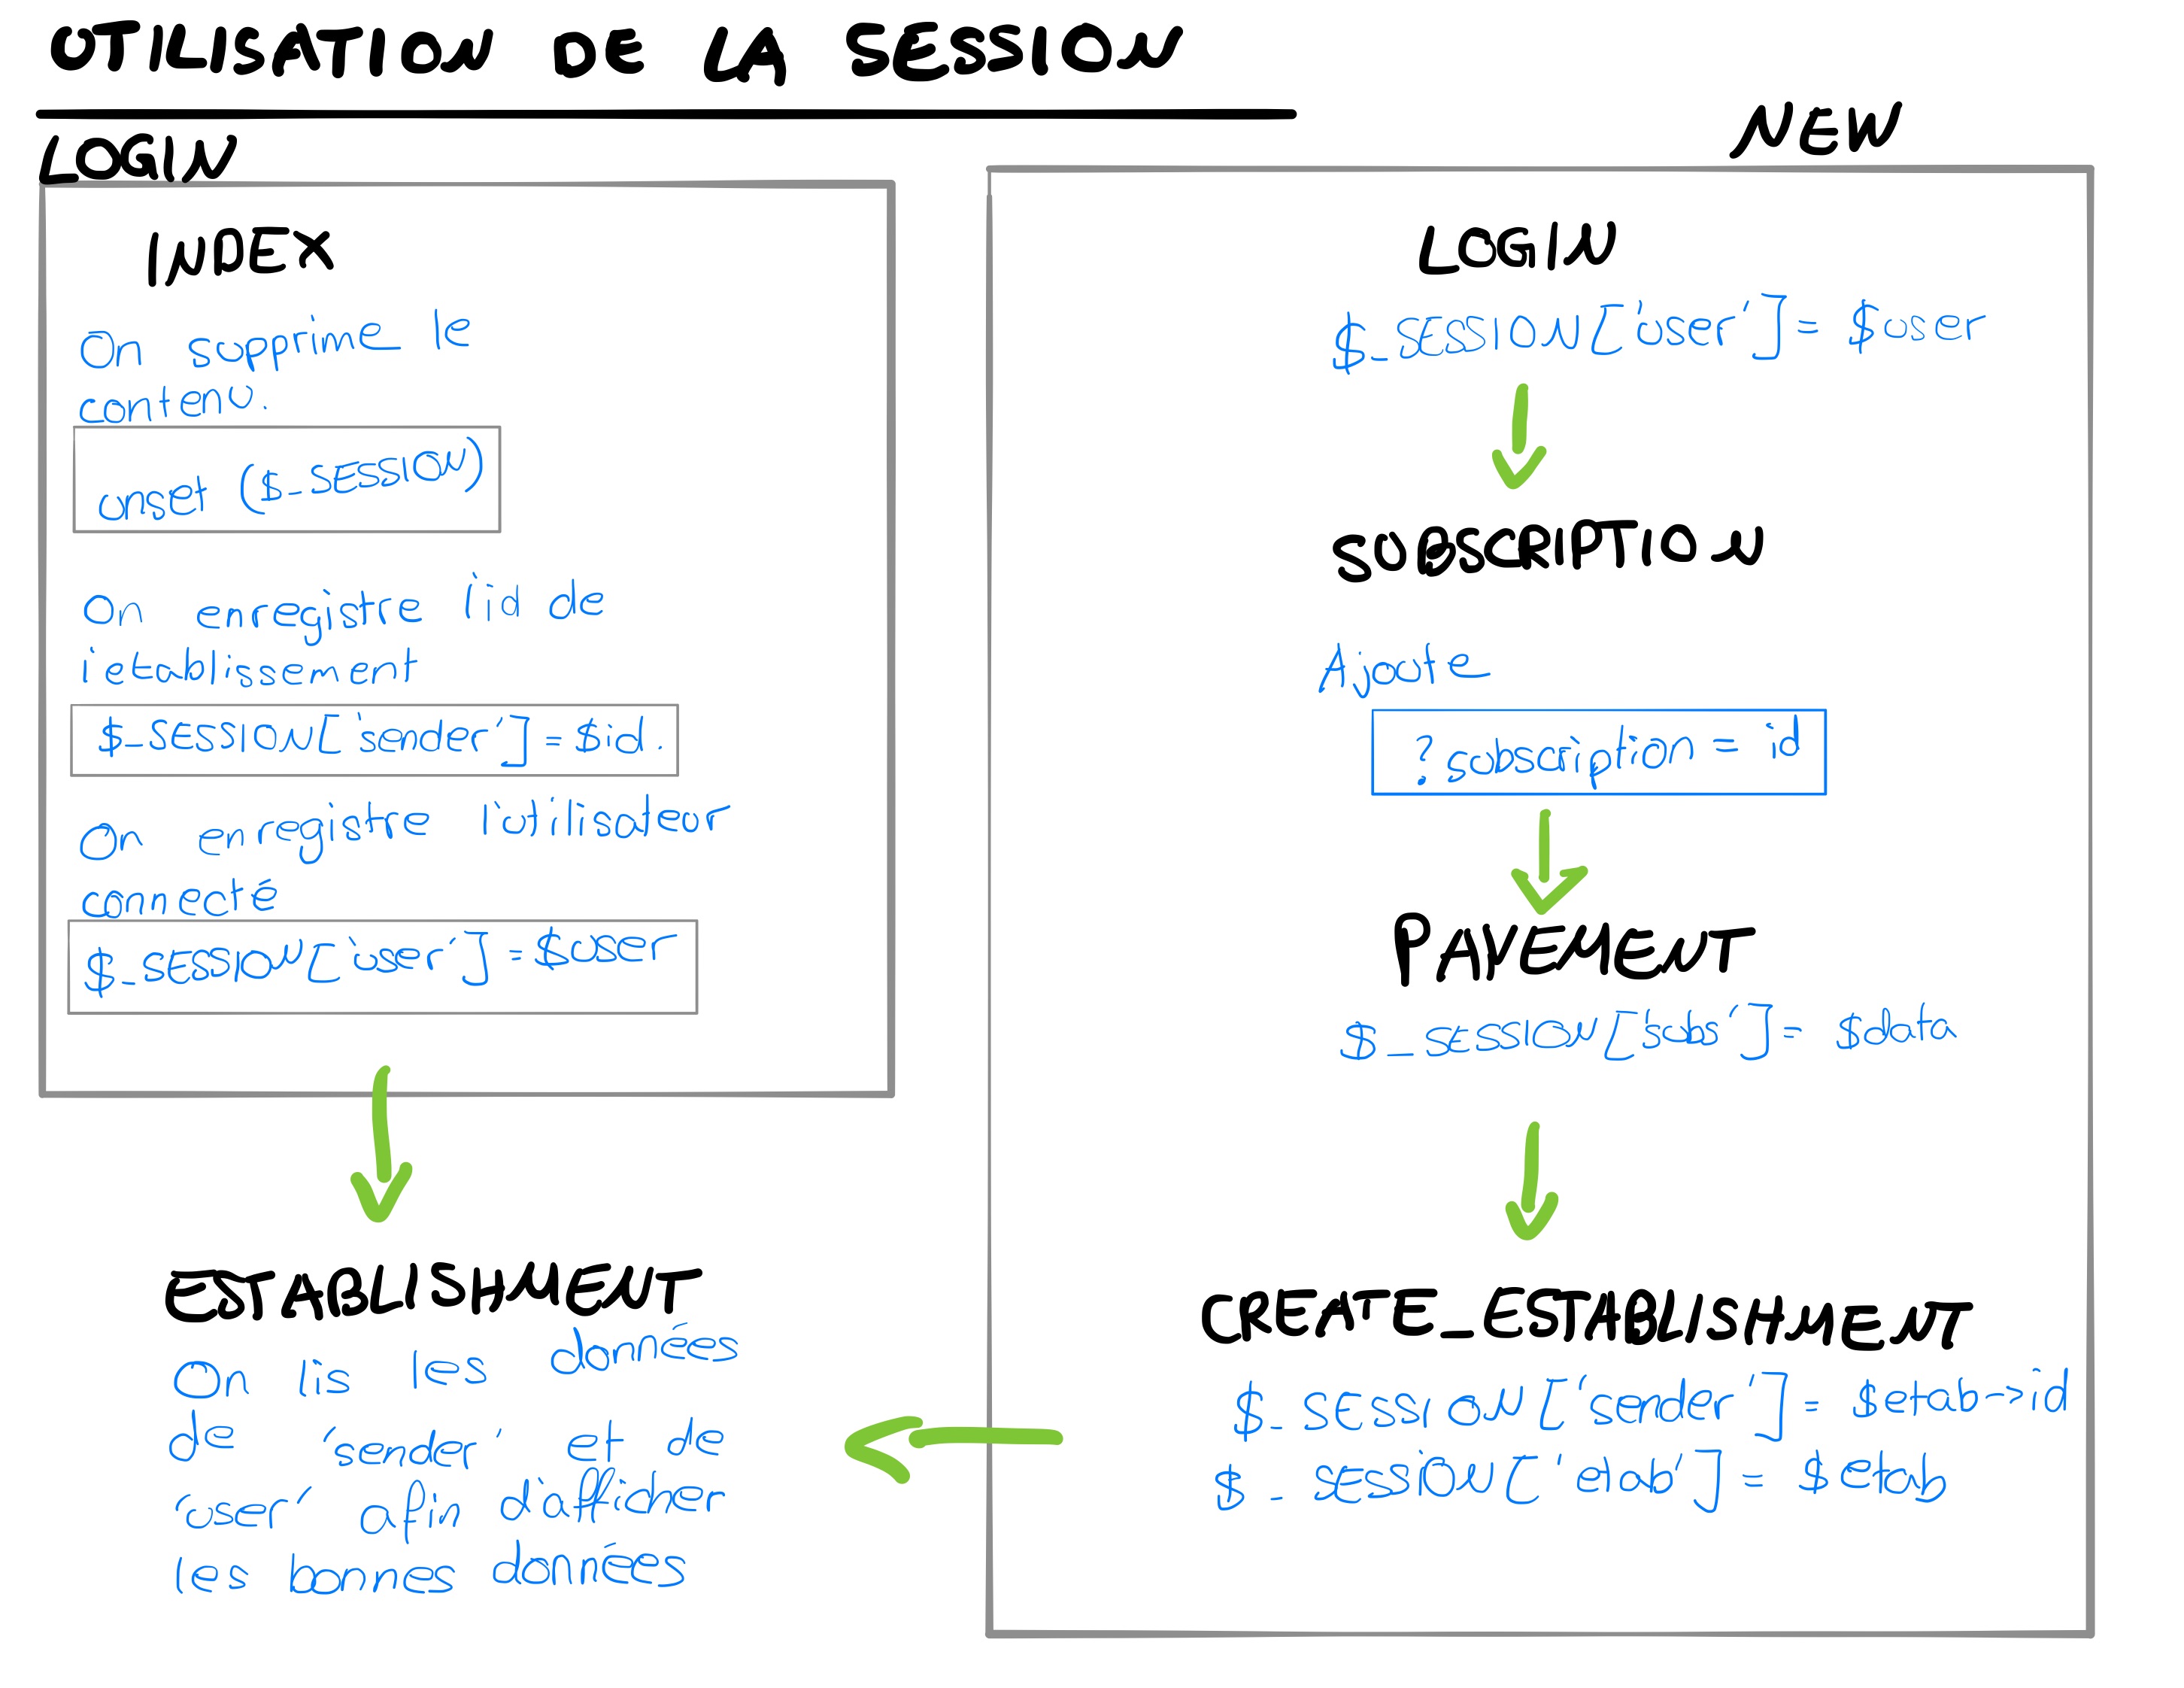 UTILISATION DE LA SESSION
LOGIN
INDEX
On supprime le
contenu.
unset ($_SESSION)
On enregistre l'id de
l'etablissement
$_SESSION['sender'] = $id.
On enregistre l'utilisateur
connecté
$_SESSION['user'] = $user
ESTABLISHMENT
On lis les données
de 'sender' et de
'user' afin d'afficher
les bonnes données
NEW
LOGIN
$_SESSION['user'] = $user
SUBSCRIPTION
Ajoute
?subscription = id
PAYEMENT
$_SESSION['subs'] = $data
CREATE_ESTABLISHMENT
$_SESSION['sender'] = $etab->id
$_SESSION['etab'] = $etab